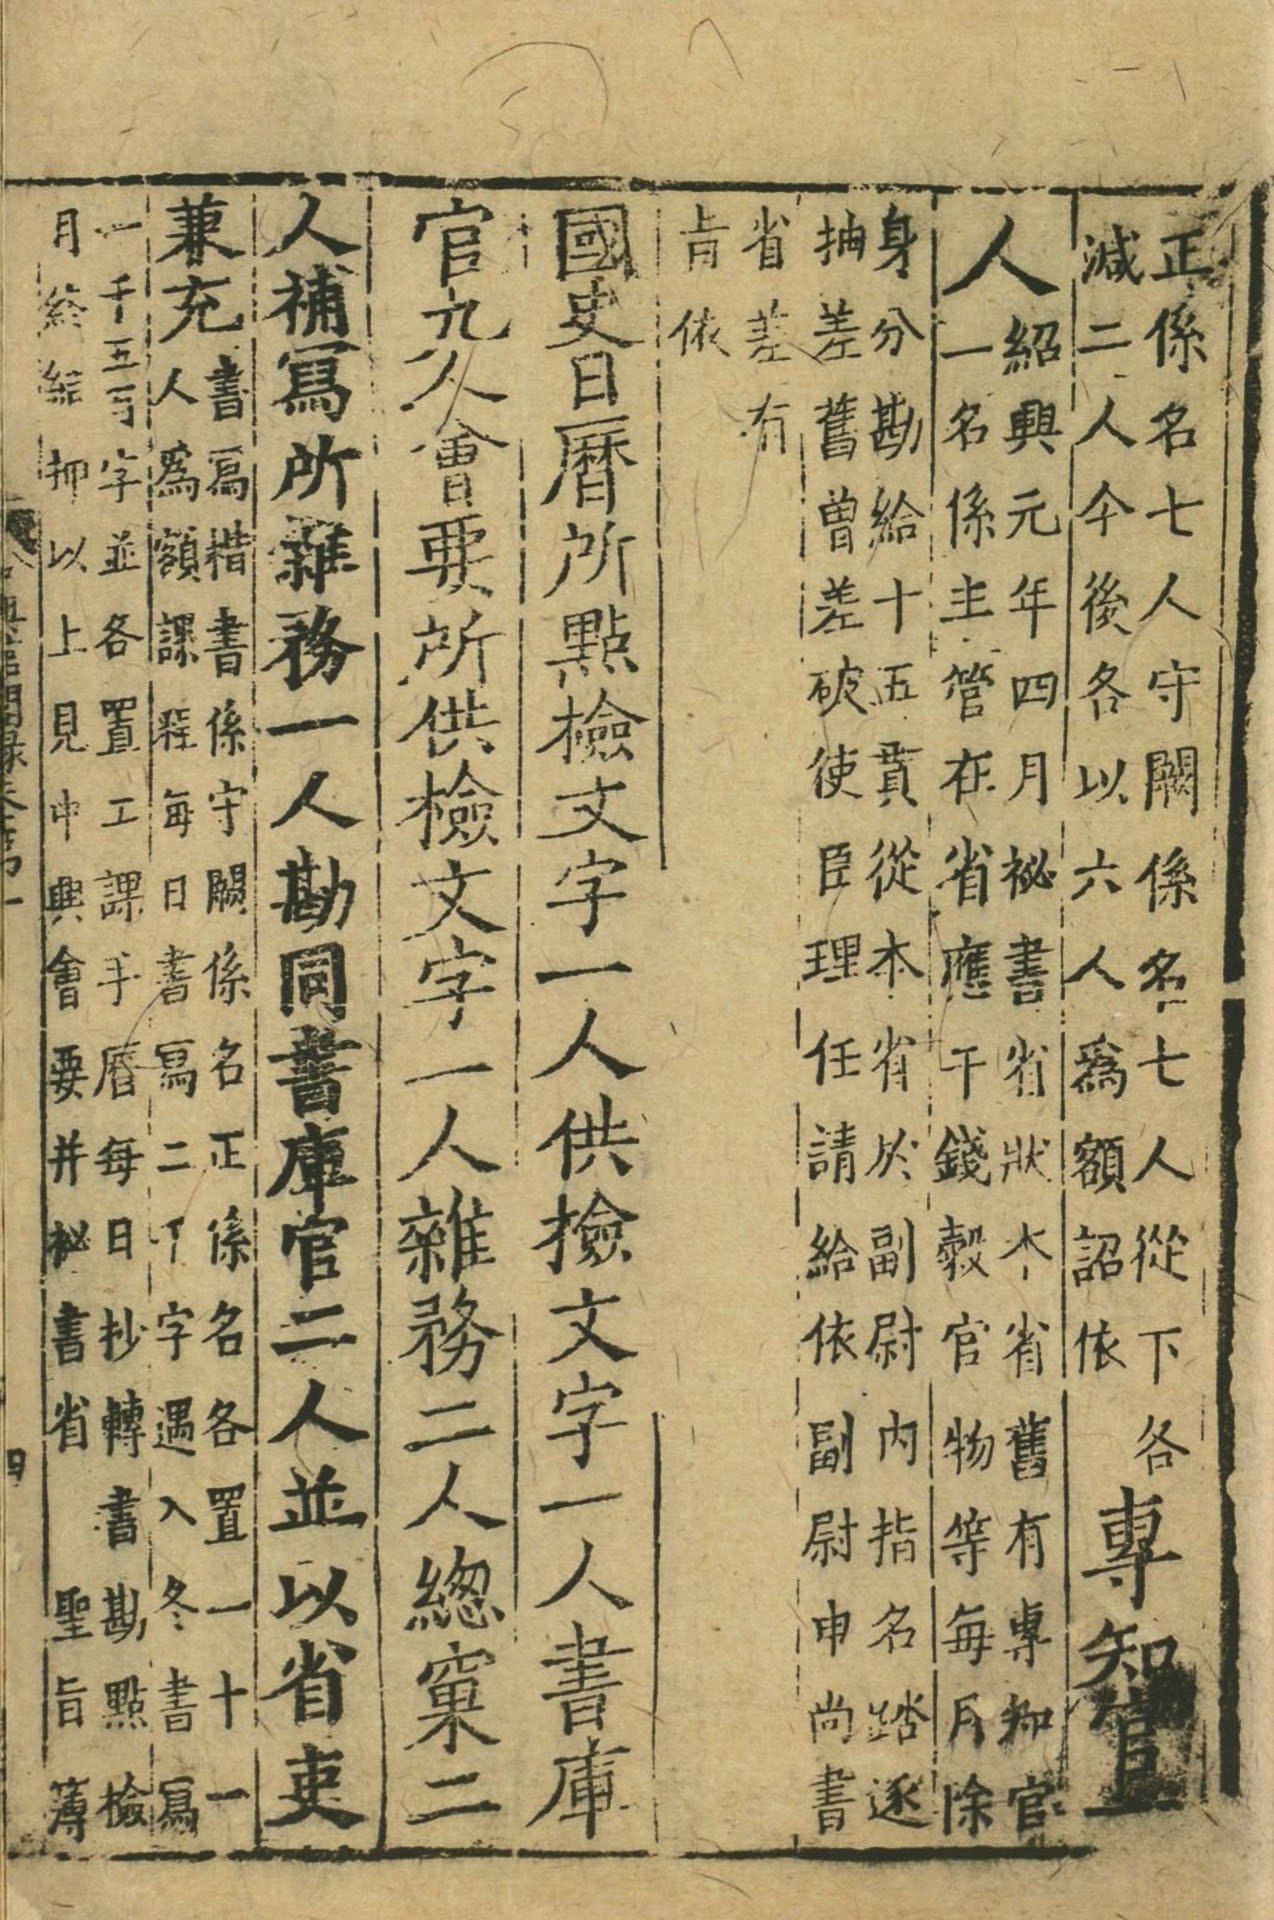 正係名七人守闕係名七人從下各
減二人今後各以六人爲額詔依
專知官
人
紹興元年四月祕書省狀本省舊有專知官
一名係主管在省應干錢穀官物等每月除
身分勘給十五貫從本省於副尉內指名踏逐
抽差舊曾差破使臣理任請給依副尉申尚書
省差有
旨依
國史日曆所點檢文字一人供檢文字一人書庫
官九人會要所供檢文字一人雜務二人緫窠二
人補寫所雜務一人勘同書庫官二人並以省吏
兼充
書寫楷書係守闕係名正係名各置一十一
人爲額課程每日書寫二千字遇入冬書寫
一千五百字並各置工課手曆每日抄轉書勘點檢
月終結押以上見中興會要并祕書省 聖旨簿
四